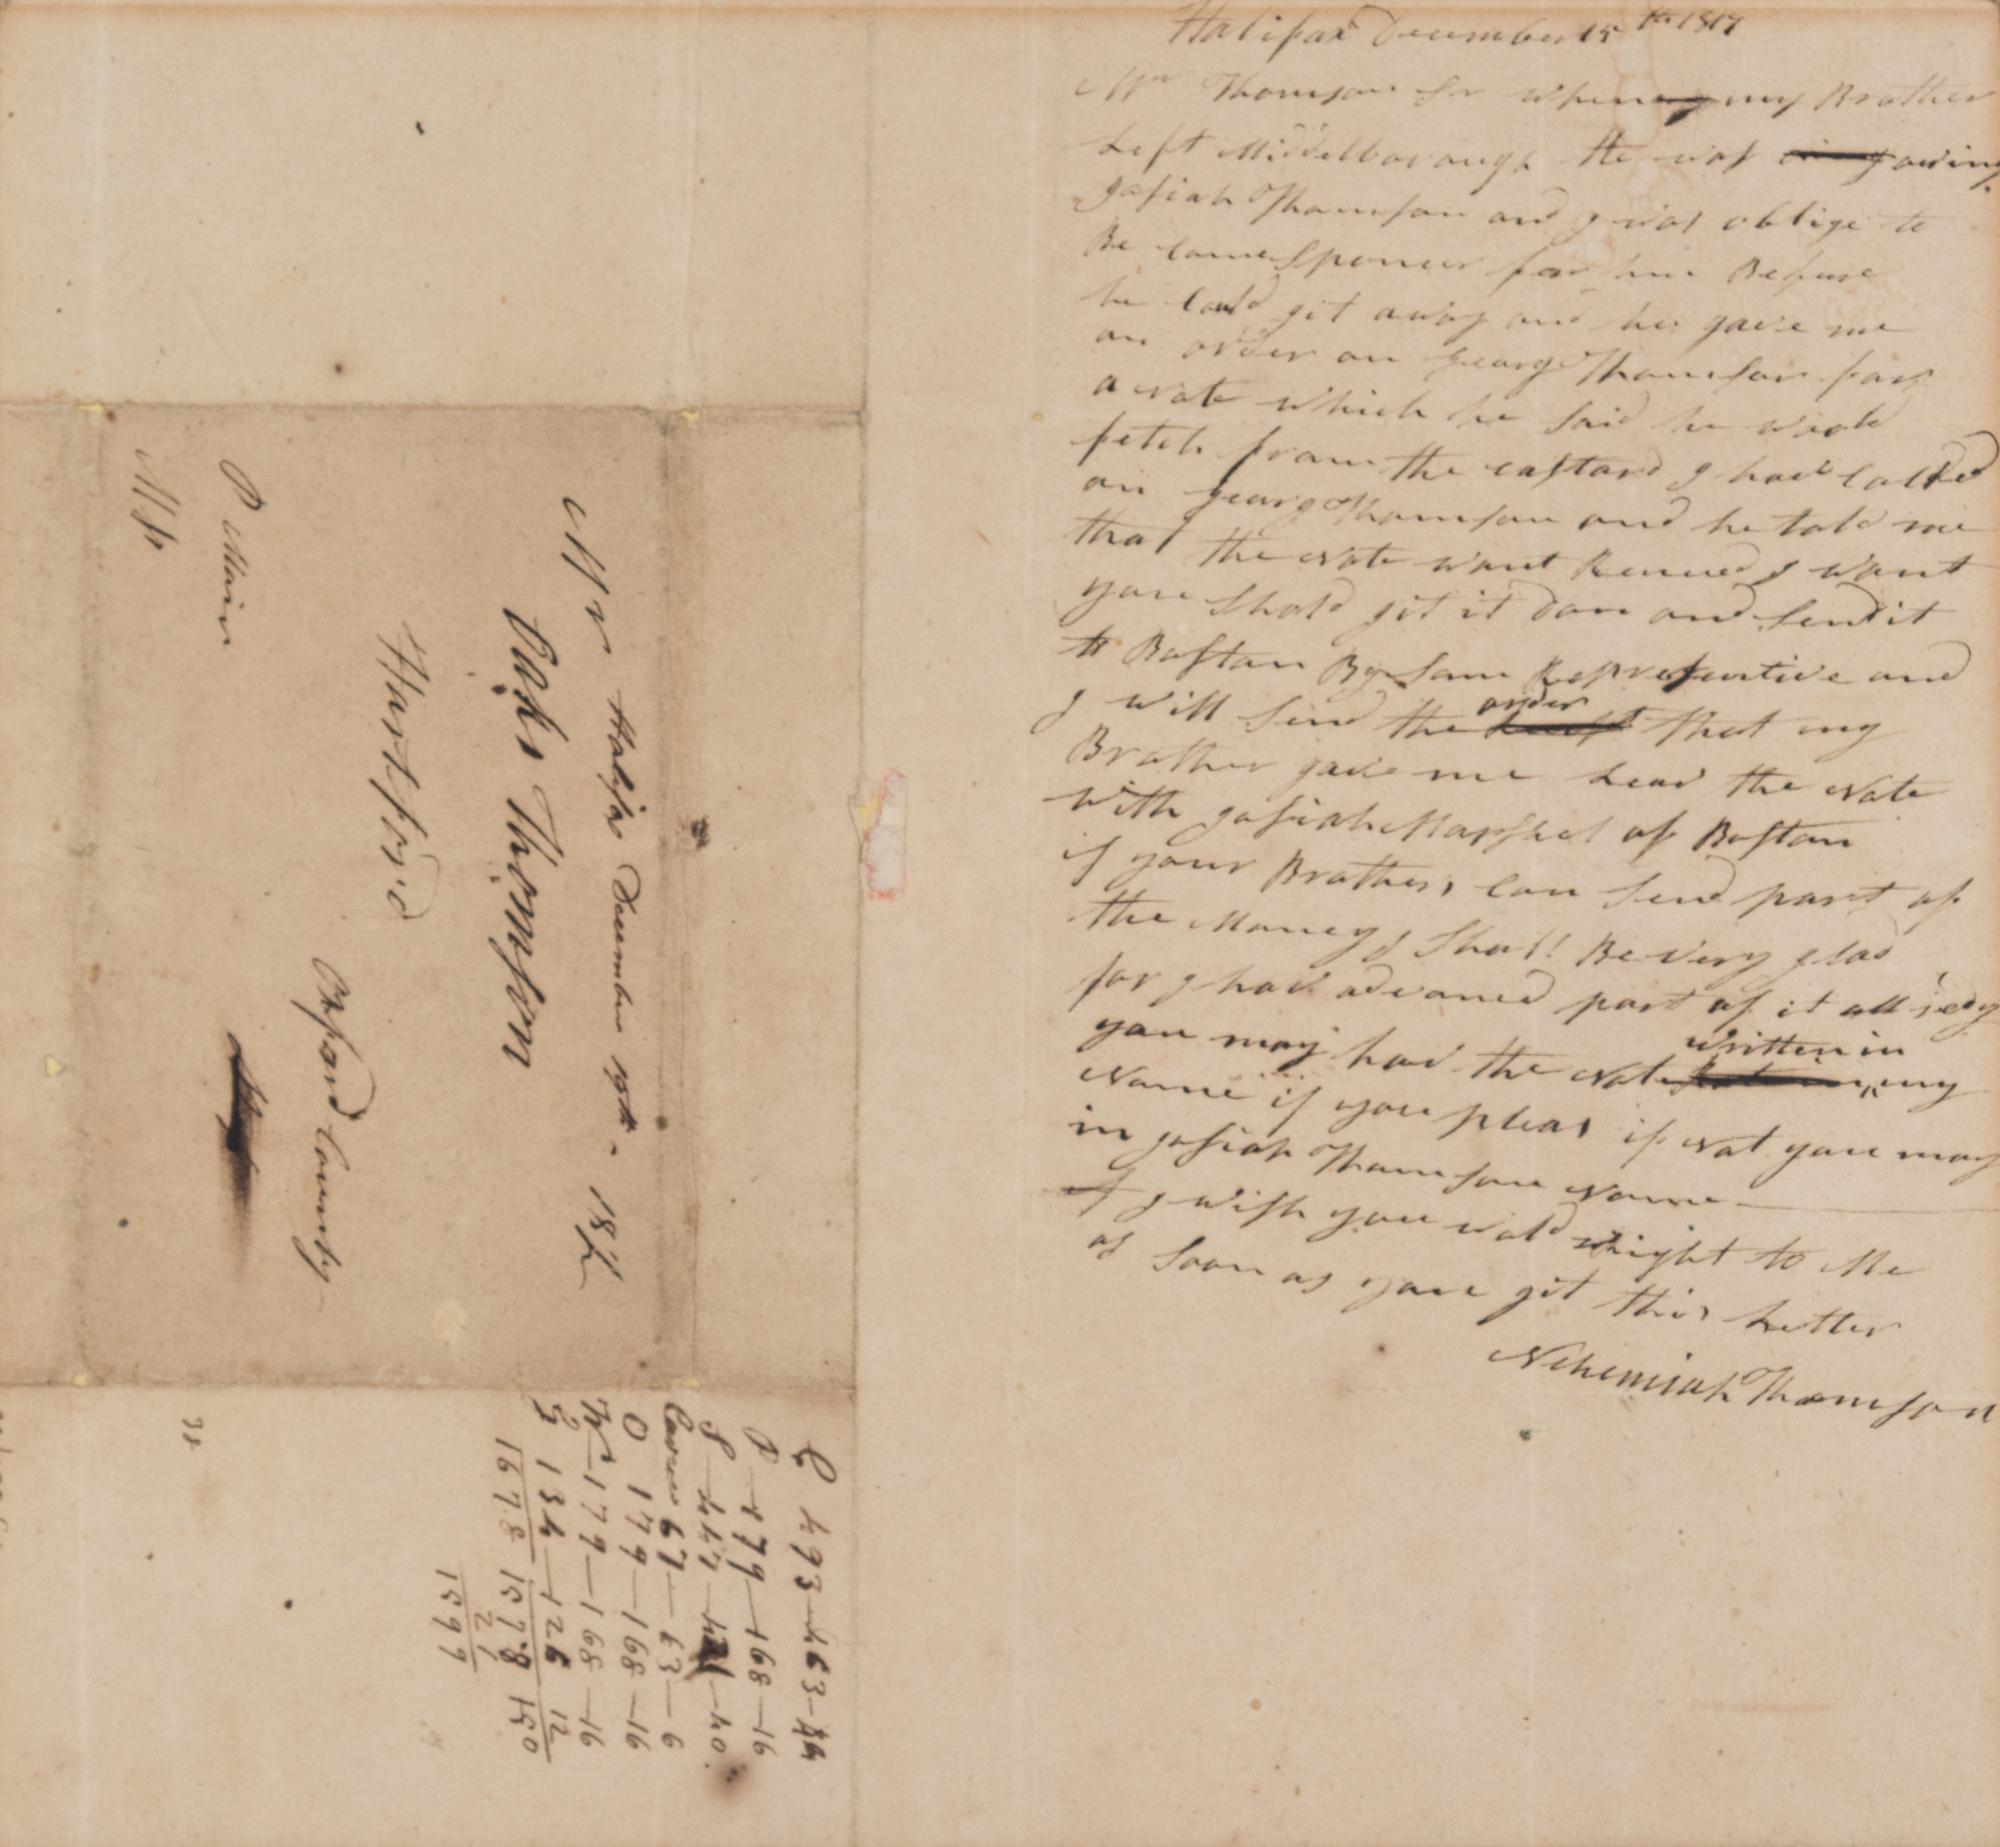 Halifax December 15th 1817
Mr Thomson Sr when my Brother
Left Middelborough He was owing
Josiah Thomson and I was oblige to
Be Come Sponcer for him Before
he Could git away and he gave me
an order on Georg Thomson for
a Note which he Said he wold
fetch from the eastard I have Called
on Georg Thomson and he told me
that the Note want Renued I want
you Shold git it don and Send it
to Boston By Som Representive and
I will Send the order that my
Brother gave me Leav the Note
with Josiah Marshel of Boston
if your Brothers Can Send part of
the Money I Shall Be very glad
for I have advanced part of it all redy
you may hav the Note written in my
Name if you pleas if Not you may
in Josiah Thomson Name
I wish you wold wright to Me
as Soon as you git this Letter
Nehemiah Thomson
Halifax December 19th - 181
Mr
Oaks Thomson
Hartford
Oxford County
P Main
C 493-463-44
P 179-168-16
S 447-421-40
Carver 67-63-6
O 179-168-16
179-168-16
134-126 12
1678 1578 150
21
1599